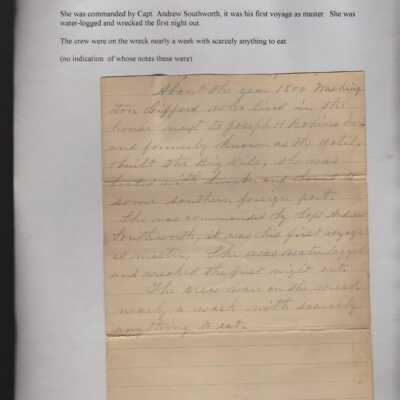 She was commanded by Capt. Andrew Southworth, it was his first voyage as master. She was
water-logged and wrecked the first night out.
The crew were on the wreck nearly a week with scarcely anything to eat.
(no indication of whose notes these were)
About the year 1800 Washing
ton Gifford who lived in the
house next to Joseph H Robins
and formerly known as the Hotel,
built the Brig, she was
loaded with and to
some southern foreign port.
She was commanded by Capt Andrew
Southworth, it was his first voyage
as master. She was waterlogged
and wrecked the first night out.
The crew were on the wreck
nearly a week with scarcely
anything to eat.